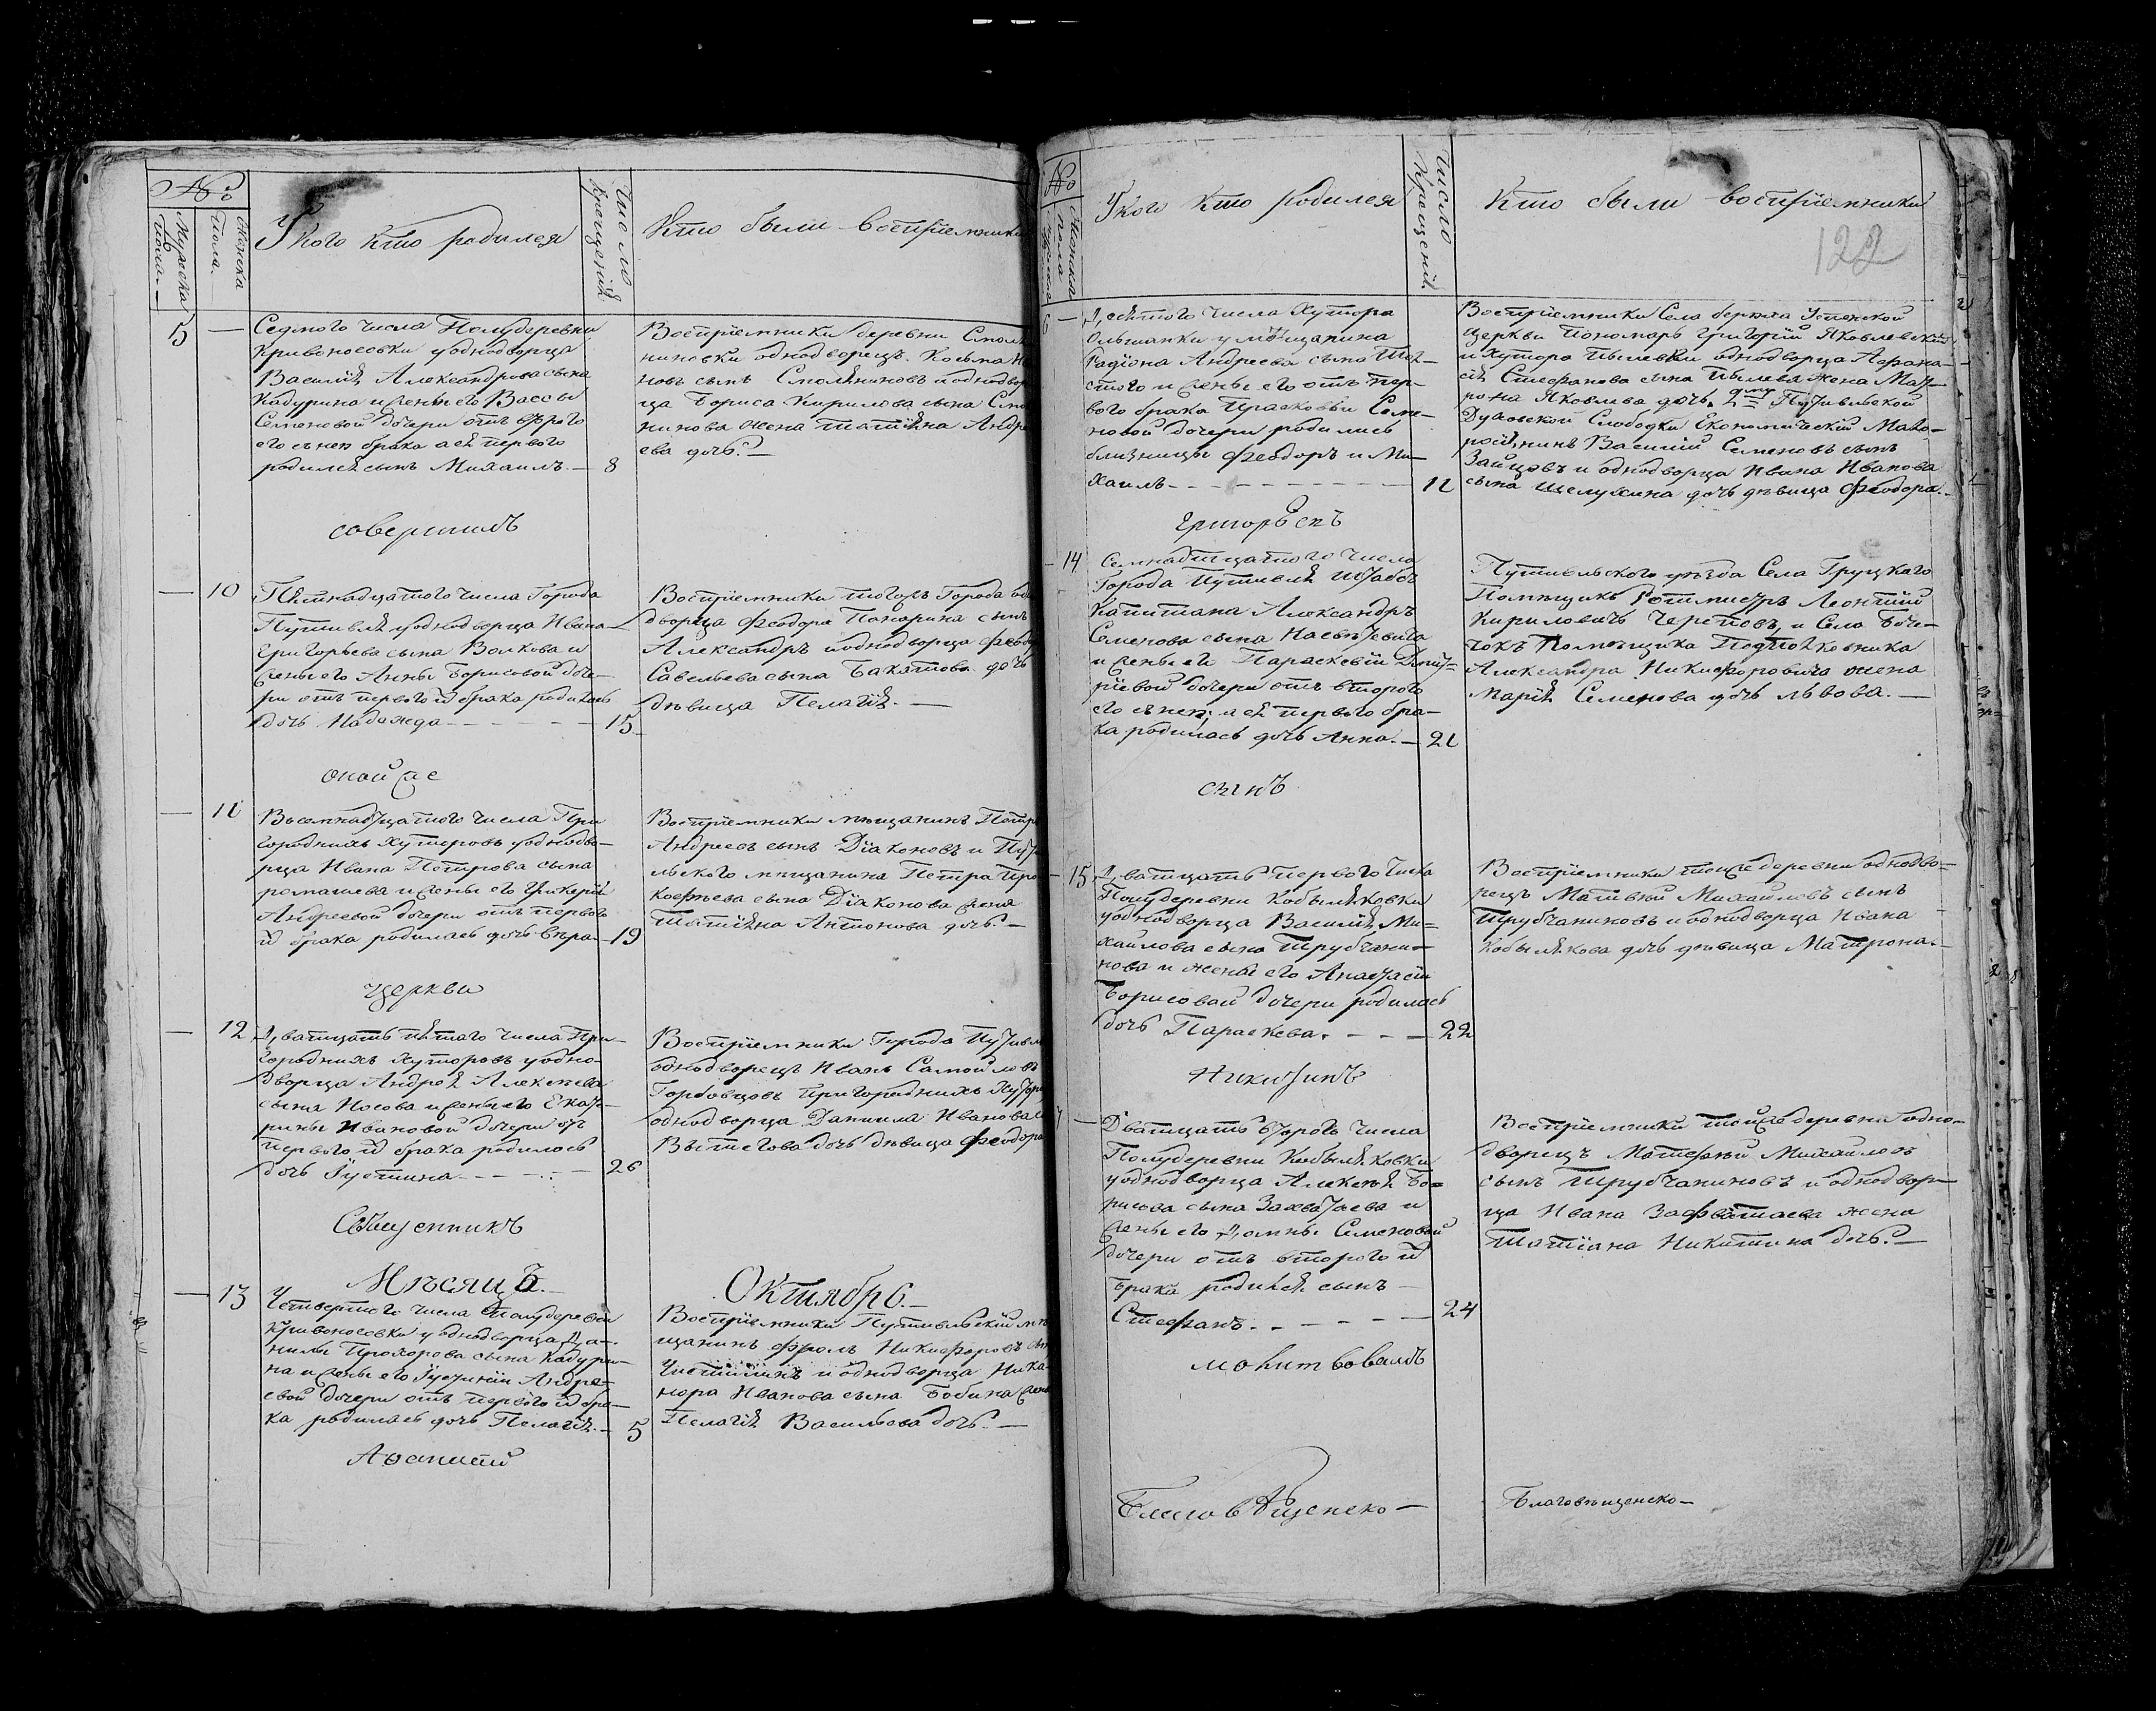 №
Мужеска
пола.
Женска
Пола.
У кого кто родился
Число
крещенія
Кто были воспріемники
5 — Седмого числа Полудеревни
Кривоносовки у однодворца
Василія Александрова сына
Кадурина и жены его Вассы
Семеновой дочери отъ втораго
его с нею брака а ея перваго
родился сынъ Михаилъ. — 8
Воспріемники деревни
однодворецъ Косьма
новъ сынъ Смоляниновъ и
ца Бориса Кирилова сына
нинова жена Татіяна
ева дочь. —
совершилъ
— 10 Пятнадцатого числа Города
Путивля у однодворца Ивана
Григорьева сына Волкова и
жены его Анны Борисовой доче-
ри отъ первого им брака родилась
дочь Надежда — 15
Воспріемники тогожъ Города
дворца Феодора Понарина сынъ
Александръ и однодворца
Савельева сына дочь
дѣвица Пелагія. —
оной же
— 11 Восемнадцатого числа При
городнихъ хуторовъ у однодво-
рца Ивана Петрова сына
ромашева и жены его Гликеріи
Андреевой дочери отъ первого
им брака родилась дочь Вѣра — 19
Воспріемники мѣщанинъ
Андреевъ сынъ Діаконовъ и
льского мѣщанина Петра
кофьева сына Діаконова жена
Татіяна Антонова дочь. —
церкви
— 12 Дватцать пятаго числа При-
городнихъ хуторовъ у одно-
дворца Андрея Алексѣева
сына Носова и жены его Екате-
рины Ивановой дочери отъ
первого им брака родилась
дочь Іустина — 26
Воспріемники Города
однодворецъ Иванъ Самойловъ
Горбовцовъ Пригороднихъ
однодворца Даниила Иванова
дочь дѣвица Феодора
Священникъ
Мѣсяцъ. — Октябрь. —
— 13 Четвертого числа Полудеревни
Кривоносовки у однодворца Да-
нилы Прохорова сына Кадури-
на и жены его Іустиніи Андре-
евой дочери отъ первого им бра-
ка родилась дочь Пелагія. — 5
Воспріемники Путивльскій
щанинъ Фролъ Никифоровъ
и однодворца Ника-
нора Иванова сына Бобина
Пелагія Васильева дочь. —
Аѳанасій
№
У кого кто родился
Число
Крещенія.
Кто были воспріемники
122
6 — Десятого числа Хутора
Ольшанки у мѣщанина
Радіона Андреева сына Тол-
стого и жены его отъ пер-
вого брака Прасковьи Семе-
новой дочери родились
близницы Феодоръ и Ми-
хаилъ — 11
Воспріемники Села Берюха Успенской
церкви Пономарь Григорій Яковлевскій
и Хутора Пылевки однодворца Афана-
сія Стефанова сына Пылева жена Мат-
рона Яковлева дочь. Путивльской
Слободки Економическій Мало-
росіянинъ Василій Семеновъ сынъ
Зайцовъ и однодворца Ивана Иванова
сына Шелухина дочь дѣвица Феодора. —
Григорьевъ
— 14 Семнадтцатого числа
Города Путивля Штабсъ
Капитана Александръ
Семенова сына
и жены его Параскевіи Дмит-
ріевой дочери отъ второго
его с нею, а ея первого бра-
ка родилась дочь Анна. — 21
Путивльского уѣзда Села Груцкаго
Помѣщикъ Ротмистръ Леонтій
Кириловичъ Череповъ, и Села Боче-
чокъ Помѣщика Подполковника
Александра Никифоровича жена
Марія Семенова дочь Львова. —
сынъ
15 Дватцать первого числа
Полудеревни Кобыляковки
у однодворца Василія Ми-
хайлова сына Трубчани-
нова и жены его Анастасіи
Борисовой дочери родилась
дочь Параскева. — 22
Воспріемники тойже деревни однодво-
рецъ Матвѣй Михайловъ сынъ
Трубчаниновъ и однодворца Ивана
Кобылякова дочь дѣвица Матрона. —
Никитинъ
— Дватцать второго числа
Полудеревни Кобыляковки
у однодворца Алексѣя Бо-
рисова сына Захватаева и
жены его Домны Семеновой
дочери отъ второго им
брака родился сынъ
Стефанъ. — 24
Воспріемники тойже деревни одно-
дворецъ Матфѣй Михайловъ
сынъ Трубчаниновъ и однодвор-
ца Ивана Захватаева жена
Татіана Никитина дочь. —
молитвовалъ
Благовѣщенско —
Благовѣщенско —